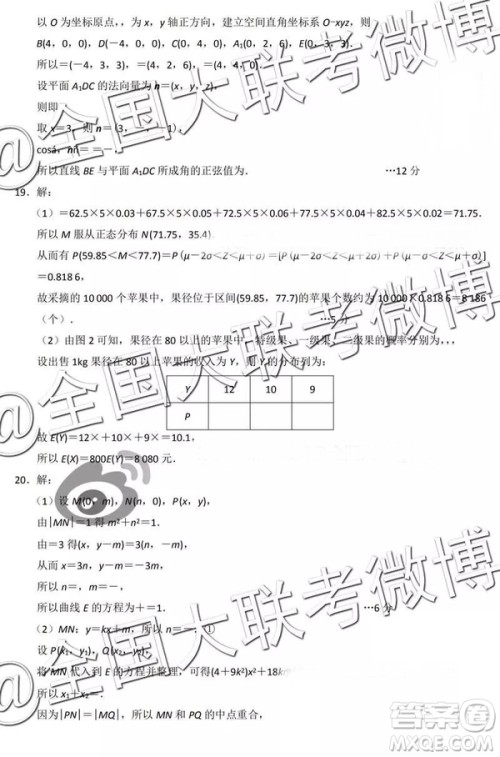 以 O 为坐标原点，，为 x，y 轴正方向，建立空间直角坐标系 O-xyz，则
B(4，0，0)，D(－4，0，0)，C(0，4，0)，A₁(0，2，6)，E(0，3，3)．
所以＝(－4，3，3)，＝(4，2，6)，＝(4，4，0)．
设平面 A₁DC 的法向量为 n＝(x，y，z)，
则即
取 x＝3，则 n＝(3，－，－1)，
cosá，nñ＝＝－．
所以直线 BE 与平面 A₁DC 所成角的正弦值为． …12 分
19．解：
（1）＝62.5×5×0.03＋67.5×5×0.05＋72.5×5×0.06＋77.5×5×0.04＋82.5×5×0.02＝71.75．
所以 M 服从正态分布 N(71.75，35.4)．
从而有 P(59.85＜M＜77.7)＝P(μ－2σ＜Z＜μ＋σ)＝[P(μ－2σ＜Z＜μ＋2σ)＋P(μ－σ＜Z＜μ＋σ)]
＝0.818 6，
故采摘的 10 000 个苹果中，果径位于区间(59.85，77.7)的苹果个数约为 10 000×0.818 6＝8 186
（个）． …5 分
（2）由图 2 可知，果径在 80 以上的苹果中，特级果、一级果、二级果的概率分别为，，，
设出售 1kg 果径在 80 以上苹果的收入为 Y，则 Y 的分布列为：
Y 12 10 9
P
故 E(Y)＝12×＋10×＋9×＝10.1，
所以 E(X)＝800E(Y)＝8 080 元．
20．解：
（1）设 M(0，m)，N(n，0)，P(x，y)，
由|MN|＝1 得 m²＋n²＝1．
由＝3 得(x，y－m)＝3(n，－m)，
从而 x＝3n，y－m＝－3m，
所以 n＝，m＝－，
所以曲线 E 的方程为＋＝1． …6 分
（2）MN：y＝kx＋t，所以＝－．①
设 P(x₁，y₁)，Q(x₂，y₂)，
将 MN 代入到 E 的方程并整理，可得(4＋9k²)x²＋18k
所以 x₁＋x₂＝．
因为|PN|＝|MQ|，所以 MN 和 PQ 的中点重合，
@全国大联考微博
@全国大联考微博
@全国大联考微博
答案圈
MXQE.COM